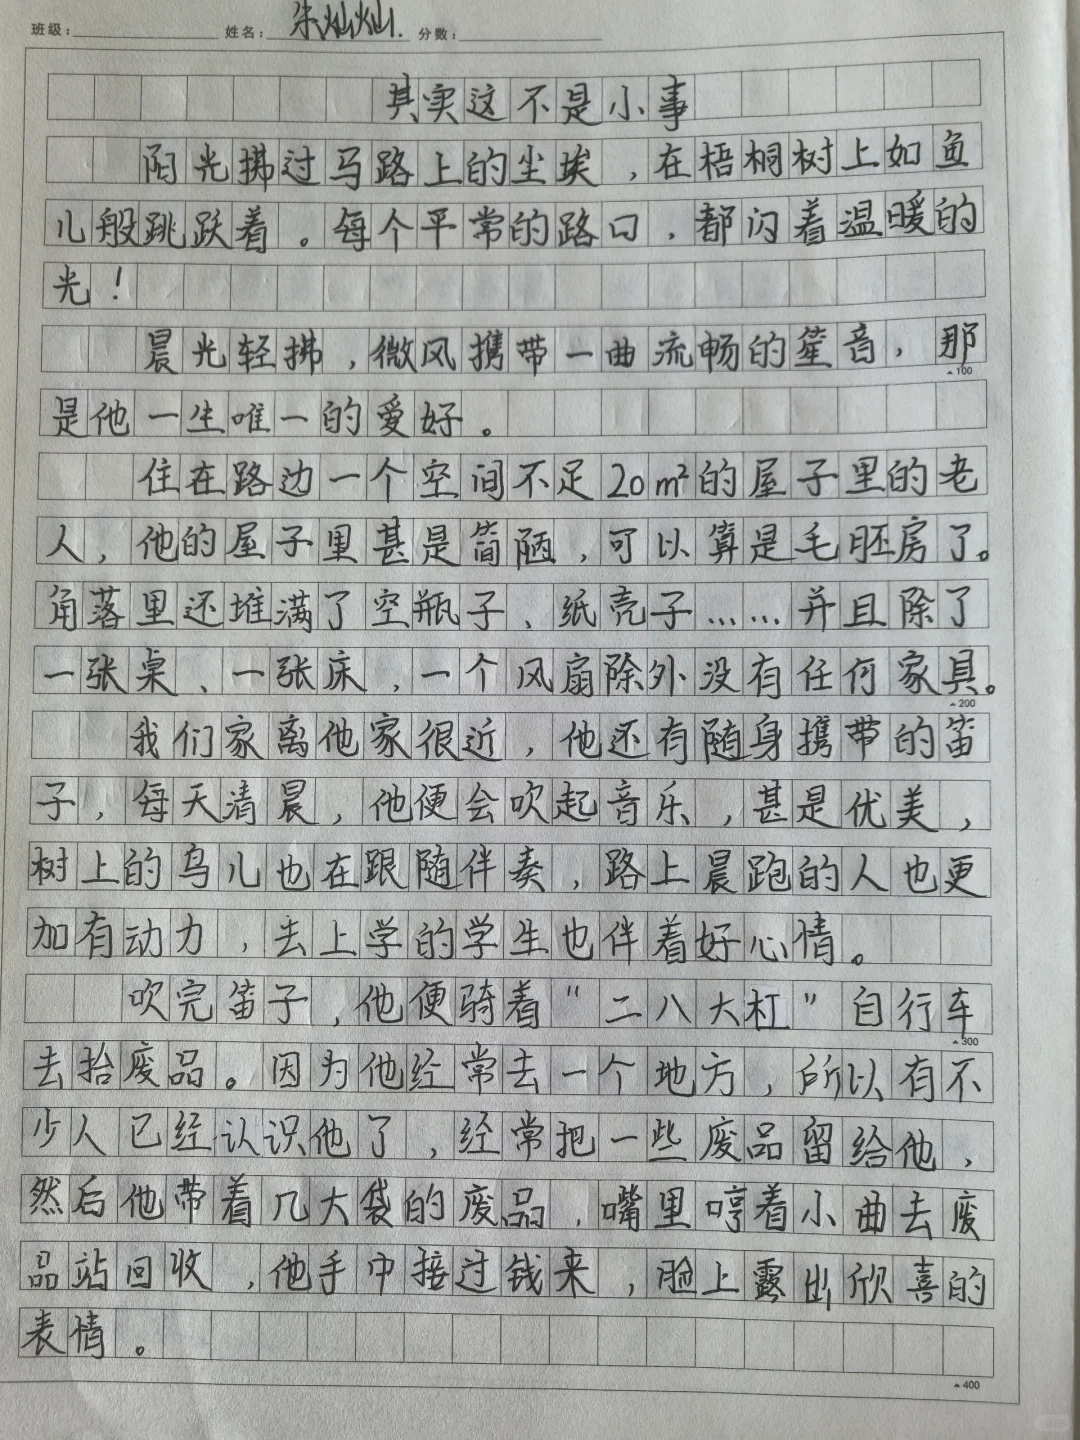 班级： 姓名：朱灿灿. 分数：
其实这不是小事
阳光拂过马路上的尘埃，在梧桐树上如鱼
儿般跳跃着。每个平常的路口，都闪着温暖的
光！
晨光轻拂，微风携带一曲流畅的笙音，那
100
是他一生唯一的爱好。
住在路边一个空间不足20m²的屋子里的老
人，他的屋子里甚是简陋，可以算是毛胚房了。
角落里还堆满了空瓶子、纸壳子……并且除了
一张桌、一张床，一个风扇除外没有任何家具。
200
我们家离他家很近，他还有随身携带的笛
子，每天清晨，他便会吹起音乐，甚是优美，
树上的鸟儿也在跟随伴奏，路上晨跑的人也更
加有动力，去上学的学生也伴着好心情。
吹完笛子，他便骑着“二八大杠”自行车
300
去拾废品。因为他经常去一个地方，所以有不
少人已经认识他了，经常把一些废品留给他，
然后他带着几大袋的废品，嘴里哼着小曲去废
品站回收，他手中接过钱来，脸上露出欣喜的
表情。
400